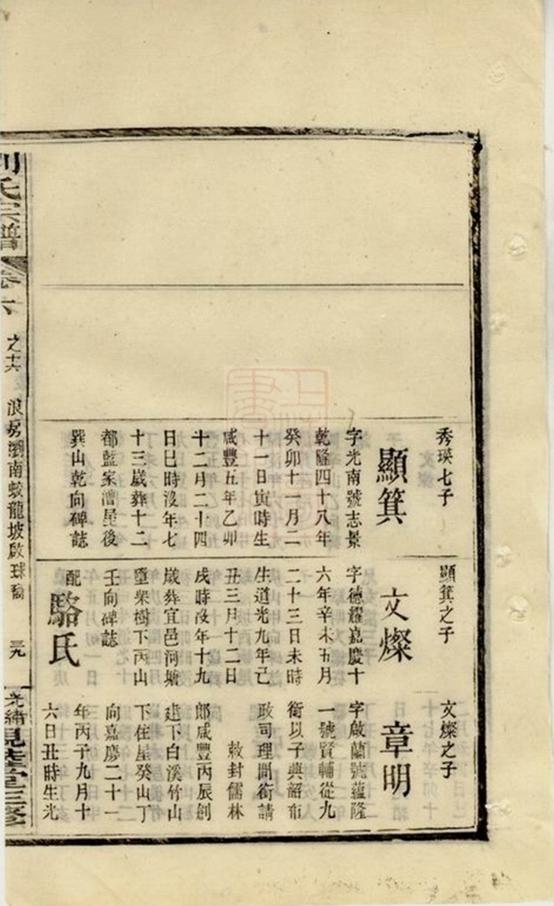 秀瑛七子
顯箕
字光南號志景
乾隆四十八年
癸卯十一月二
十一日寅時生
咸豐五年乙卯
十二月二十四
日巳時沒年七
十三歲葬十二
都藍家僧屋後
巽山乾向碑誌
顯箕之子
文燦
字德耀嘉慶十
六年辛未五月
二十三日未時
生道光九年己
丑三月十二日
戌時沒年十九
歲葬宜邑河塘
窰柴樹下丙山
壬向碑誌
配駱氏
文燦之子
章明
字啟蘭號蘊隆
一號賢輔從九
銜以子典紹布
政司理問銜請
敕封儒林
郎咸豐丙辰創
建下白溪竹山
下住屋癸山丁
向嘉慶二十一
年丙子九月十
六日丑時生光
劉氏宗譜
卷六
之十六
浪房瀏南蛟龍坡啟球
三九
光緒
堂三修